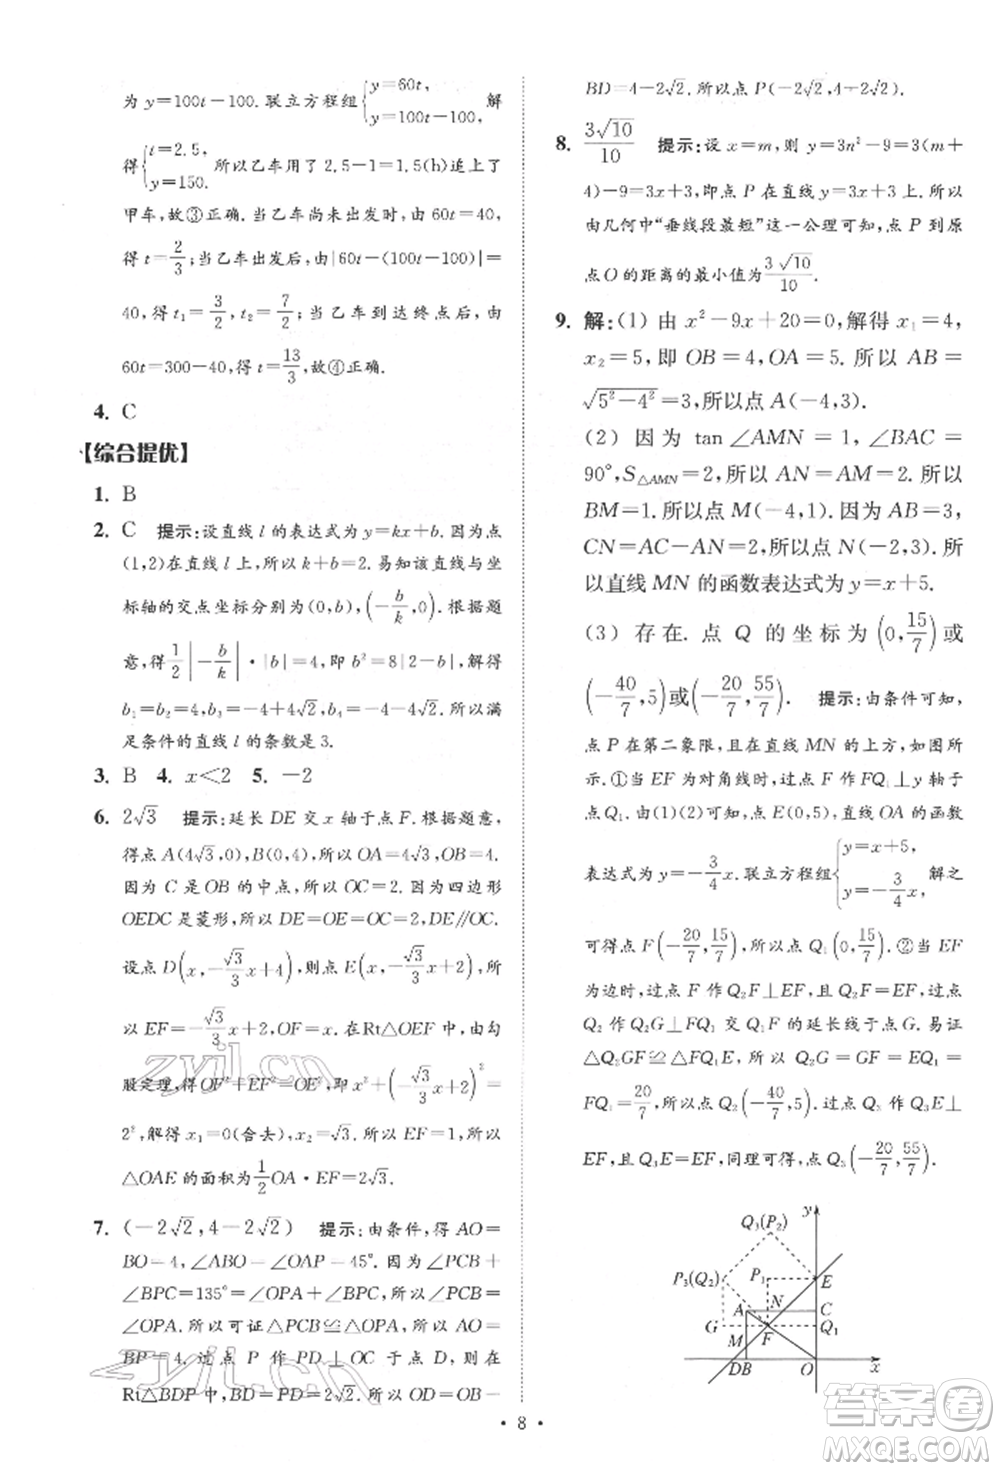 为 y=100t-100. 联立方程组{y=60t, y=100t-100, 解
得{t=2.5, y=150. 所以乙车用了 2.5-1=1.5(h)追上了
甲车,故③正确. 当乙车尚未出发时,由 60t=40,
得 t=2/3;当乙车出发后,由|60t-(100t-100)|=
40,得 t₁=3/2,t₂=7/2;当乙车到达终点后,由
60t=300-40,得 t=13/3,故④正确.
4. C
【综合提优】
1. B
2. C 提示:设直线 l 的表达式为 y=kx+b. 因为点
(1,2)在直线 l 上,所以 k+b=2. 易知该直线与坐
标轴的交点坐标分别为(0,b),(-b/k,0). 根据题
意,得 1/2|-b/k|·|b|=4,即 b²=8|2-b|,解得
b₁=b₂=4,b₃=-4+4√2,b₄=-4-4√2. 所以满
足条件的直线 l 的条数是 3.
3. B 4. x<2 5. -2
6. 2√3 提示:延长 DE 交 x 轴于点 F. 根据题意,
得点 A(4√3,0),B(0,4),所以 OA=4√3,OB=4.
因为 C 是 OB 的中点,所以 OC=2. 因为四边形
OEDC 是菱形,所以 DE=OE=OC=2,DE∥OC.
设点 D(x,-√3/3x+4),则点 E(x,-√3/3x+2),所
以 EF=-√3/3x+2,OF=x. 在 Rt△OEF 中,由勾
股定理,得 OF²+EF²=OE²,即 x²+(-√3/3x+2)²=
2²,解得 x₁=0(舍去),x₂=√3. 所以 EF=1. 所以
△OAE 的面积为 1/2 OA·EF=2√3.
7. (-2√2,4-2√2) 提示:由条件,得 AO=
BO=4,∠ABO=∠OAP=45°. 因为∠PCB+
∠BPC=135°=∠OPA+∠BPC,所以∠PCB=
∠OPA. 所以可证△PCB≌△OPA. 所以 AO=
BP=4. 过点 P 作 PD⊥OC 于点 D,则在
Rt△BDP 中,BD=PD=2√2. 所以 OD=OB-
BD=4-2√2. 所以点 P(-2√2,4-2√2).
8. 3√10/10 提示:设 x=m,则 y=3n²-9=3(m+
4)-9=3x+3,即点 P 在直线 y=3x+3 上. 所以
由几何中“垂线段最短”这一公理可知,点 P 到原
点 O 的距离的最小值为 3√10/10.
9. 解:(1) 由 x²-9x+20=0,解得 x₁=4,
x₂=5,即 OB=4,OA=5. 所以 AB=
√(5²-4²)=3,所以点 A(-4,3).
(2) 因为 tan∠AMN=1,∠BAC=
90°,S△AMN=2,所以 AN=AM=2. 所以
BM=1. 所以点 M(-4,1). 因为 AB=3,
CN=AC-AN=2,所以点 N(-2,3). 所
以直线 MN 的函数表达式为 y=x+5.
(3) 存在. 点 Q 的坐标为(0,15/7)或
(-40/7,5)或(-20/7,55/7). 提示:由条件可知,
点 P 在第二象限,且在直线 MN 的上方,如图所
示. ①当 EF 为对角线时,过点 F 作 FQ₁⊥y 轴于
点 Q₁. 由直线 MN 的表达式可知,点 E(0,5),直线 OA 的函数
表达式为 y=-3/4x. 联立方程组{y=x+5, y=-3/4x, 解之
可得点 F(-20/7,15/7),所以点 Q₁(0,15/7). ②当 EF
为边时,过点 F 作 Q₂F⊥EF,且 Q₂F=EF,过点
Q₂ 作 Q₂G⊥FQ₁ 交 FQ₁ 的延长线于点 G. 易证
△Q₂GF≌△FQ₁E,所以 Q₂G=GF=EQ₁=
FQ₁=20/7,所以点 Q₂(-40/7,5). 过点 E 作 Q₃E⊥
EF,且 Q₃E=EF,同理可得点 Q₃(-20/7,55/7).
y
Q₃(P₂)
P₃(Q₂) P₁ E
A N C
G F Q₁
M
D B O x
· 8 ·
zyjl.cn
zyjl.cn
答案圈
MXQE.COM